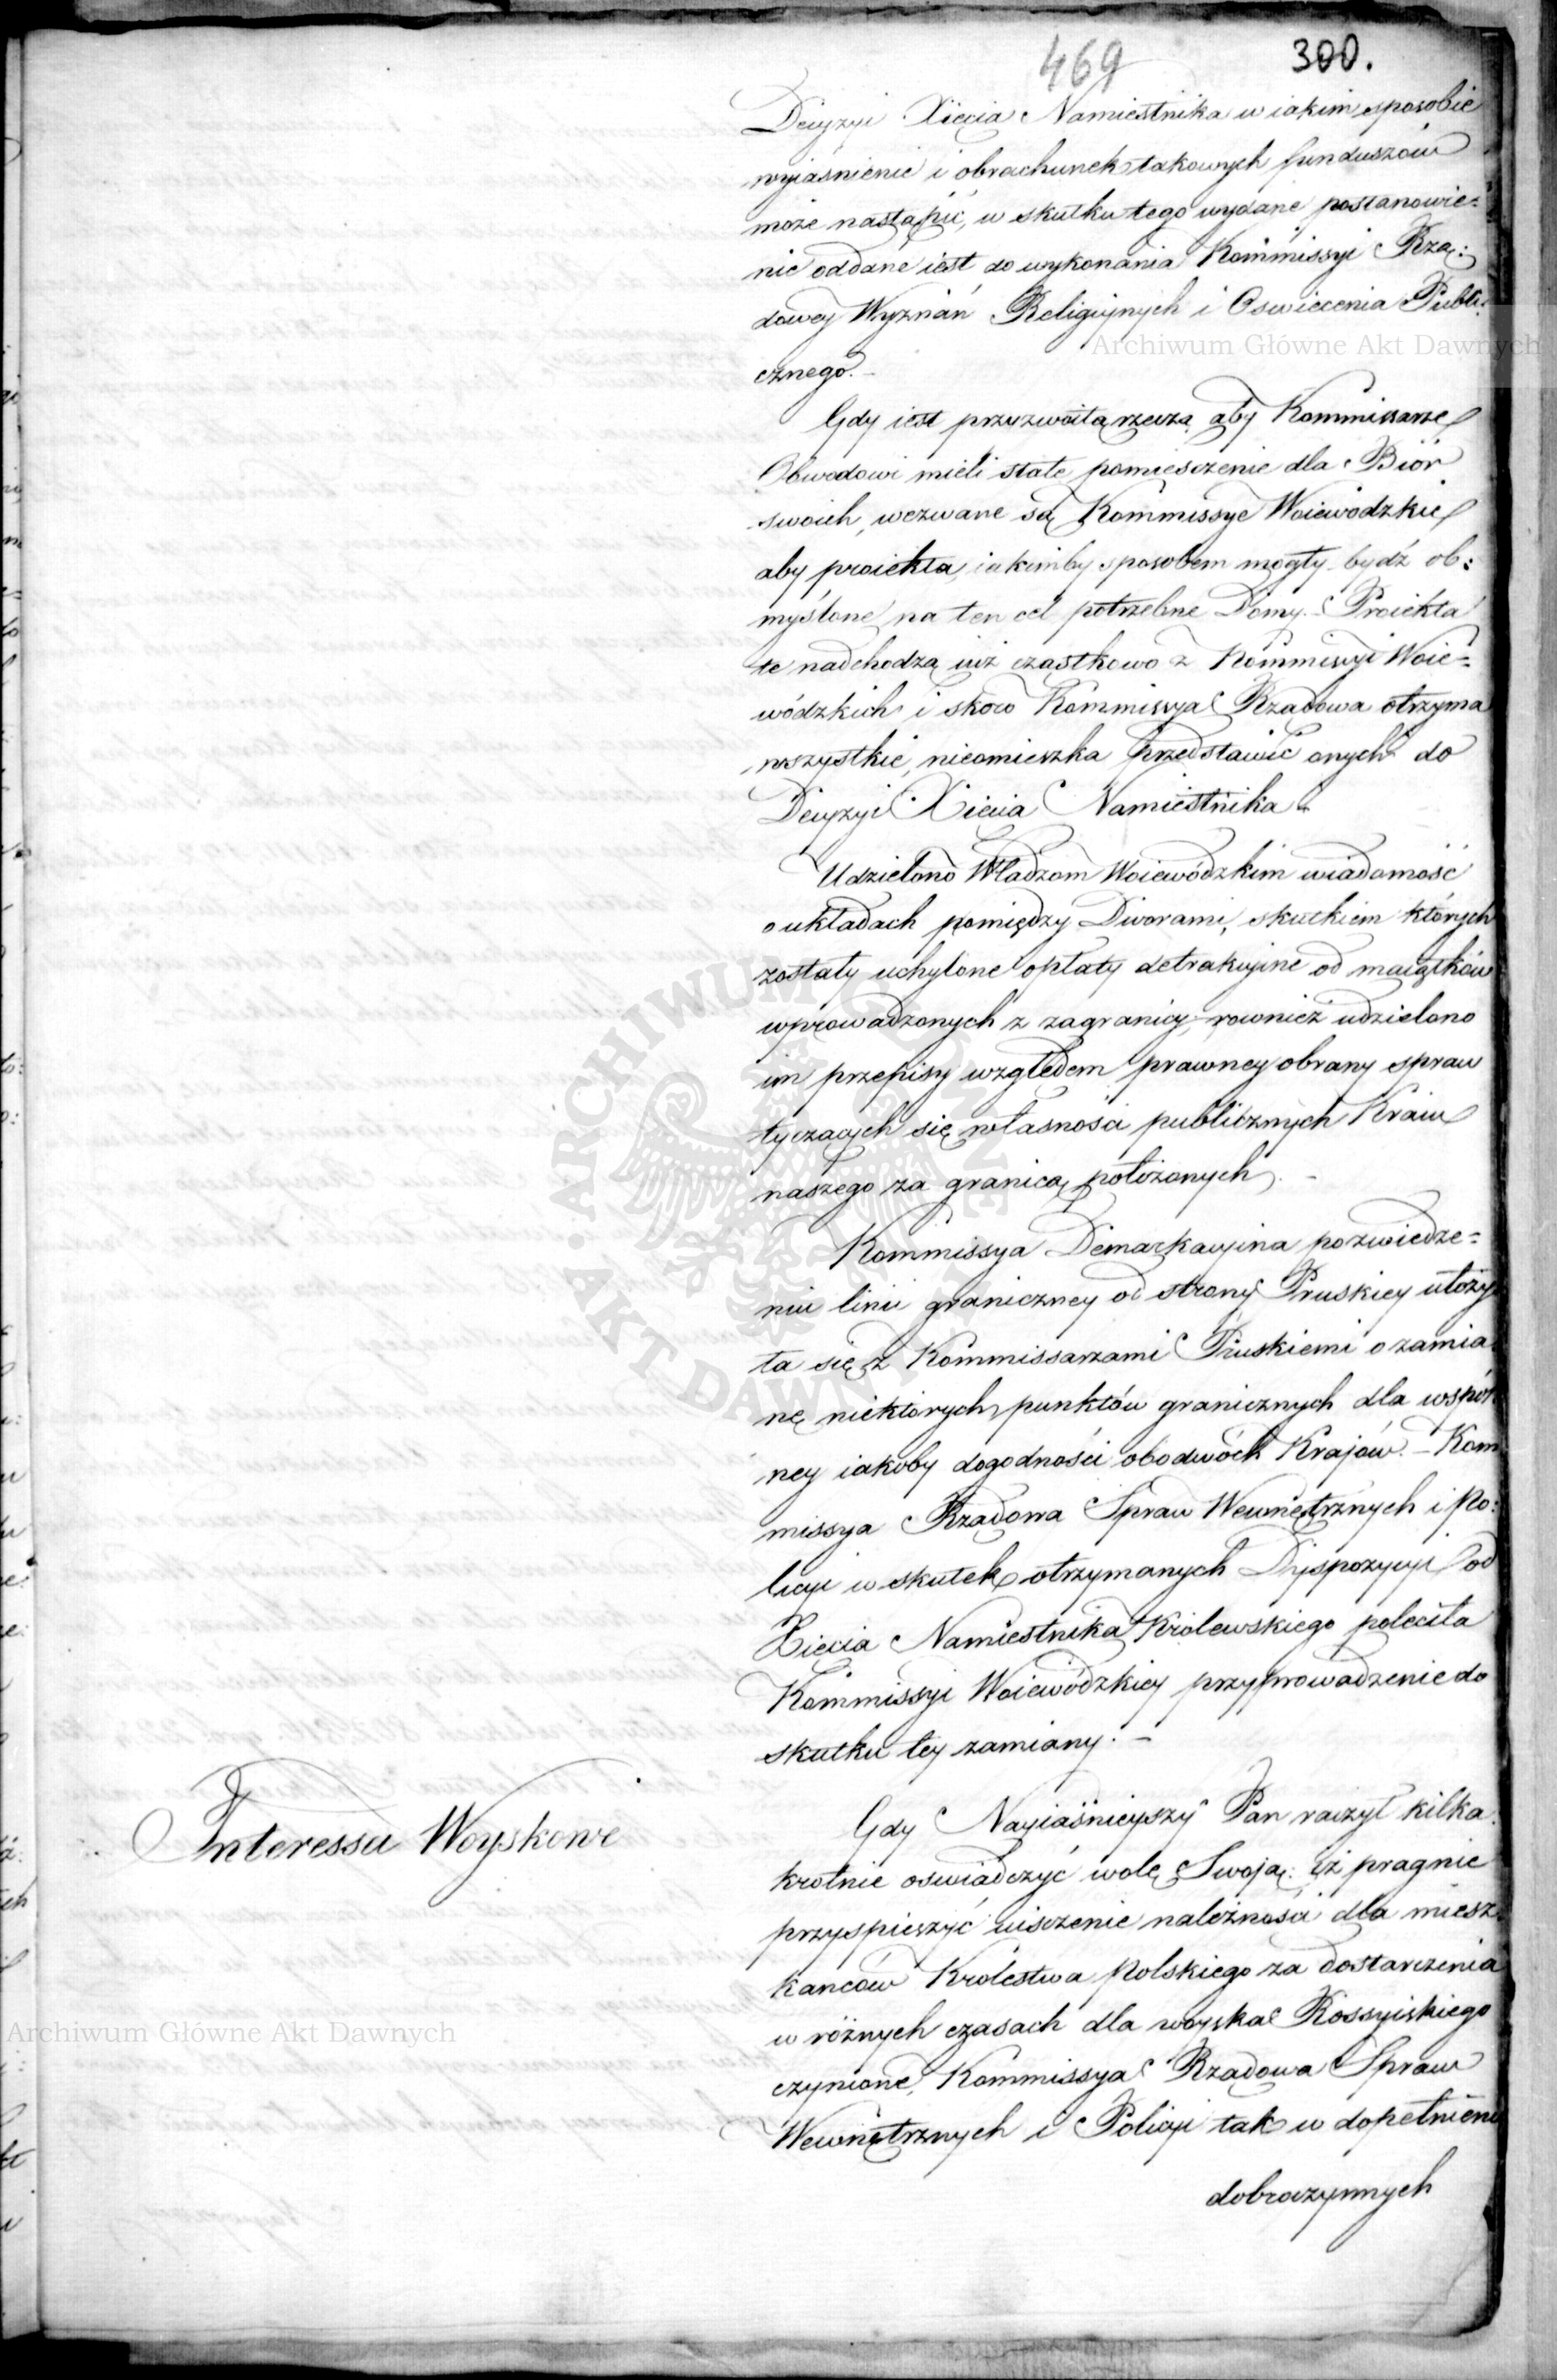 469 300.
Decyzyi Xięcia Namiestnika w iakim sposobie
wyiaśnienie i obrachunek takowych funduszów
może nastąpić, w skutku tego wydane postanowie=
nie oddane iest do wykonania Kommissyi Rzą=
dowey Wyznań Religiynych i Oswiecenia Publi=
cznego. –
Gdy iest przyzwoitą rzeczą aby Kommissarze
Obwodowi mieli stałe pomieszczenie dla Biór
swoich, wezwane są Kommissye Woiewodzkie
aby proiekta, iakimby sposobem mogły bydź ob=
myślone na ten cel potrzebne Domy. – Proiekta
te nadchodzą iuż cząstkowo z Kommissyi Woie=
wódzkich i skoro Kommissya Rządowa otrzyma
wszystkie, nieomieszka przedstawić onych do
Decyzyi Xięcia Namiestnika.
Udzielono Władzom Woiewódzkim wiadomość
o układach pomiędzy Dworami, skutkiem których
zostały uchylone opłaty detrakcyine od maiątków
wprowadzonych z zagranicy, rownież udzielono
im przepisy względem prawney obrany spraw
tyczących się własności publicznych Kraiu
naszego za granicą położonych. –
Kommissya Demarkacyina po zwiedze=
niu linii graniczney od strony Pruskiey ułoży
ła się z Kommissarzami Pruskiemi o zamia
nę niektórych punktów granicznych dla wspól
ney iakoby dogodności obodwóch Krajów. – Kom
missya Rządowa Spraw Wewnętrznych i Po=
licyi w skutek otrzymanych Dyspozycyi od
Xięcia Namiestnika Królewskiego poleciła
Kommissyi Woiewódzkiey przyprowadzenie do
skutku tey zamiany. –
Interessa Woyskowe
Gdy Nayiaśnieyszy Pan raczył kilka
krotnie oswiadczyć wolę Swoją: iż pragnie
przyspieszyć uiszczenie należności dla miesz
kanców Krolestwa Polskiego za dostarczenia
w różnych czasach dla woyska Rossyiskiego
czynione, Kommissya Rządowa Spraw
Wewnętrznych i Policyi tak w dopełnieniu
dobroczynnych
Archiwum Główne Akt Dawnych
Archiwum Główne Akt Dawnych
ARCHIWUM GŁÓWNE · AKT DAWNYCH ·